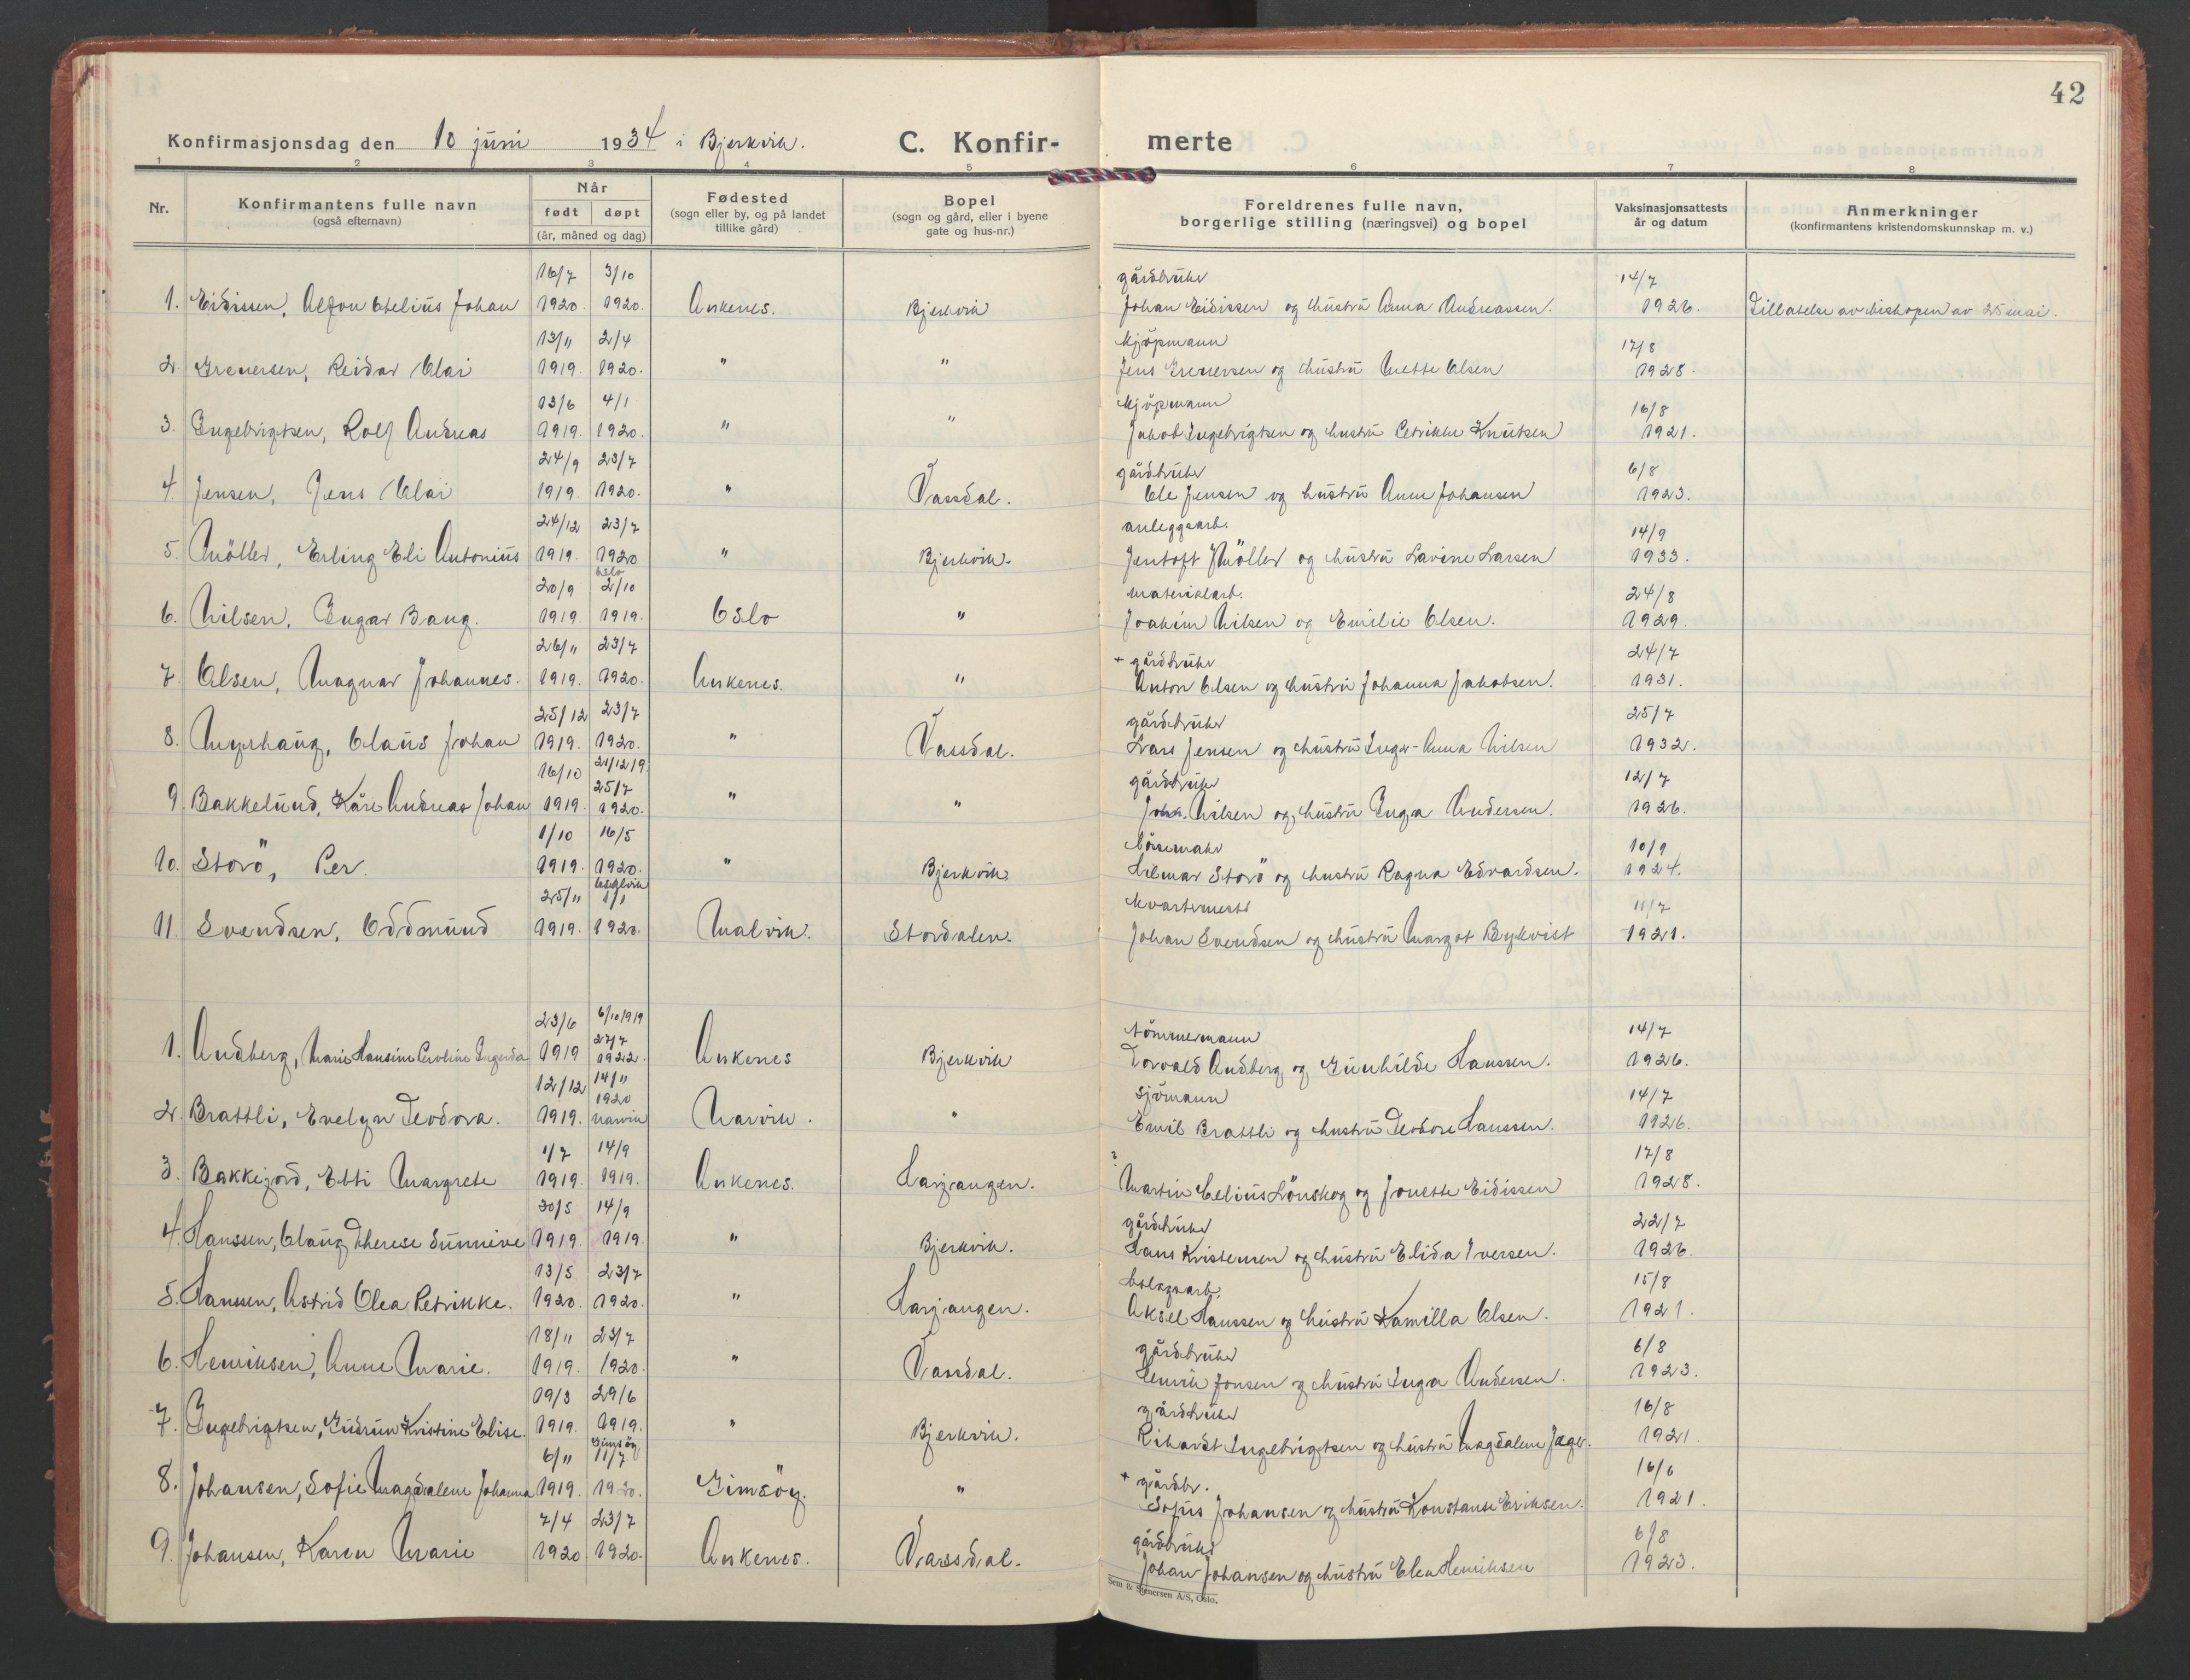 42
Konfirmasjonsdag den 10 juni 1934 i Bjerkvik.
C. Konfirmerte
1 2 3 4 5 6 7 8
Nr. | Konfirmantens fulle navn (også efternavn) | Når født | døpt (år, måned og dag) | Fødested (sogn eller by, og på landet tillike gård) | Bopel (sogn og gård, eller i byene gate og hus-nr.) | Foreldrenes fulle navn, borgerlige stilling (næringsvei) og bopel | Vaksinasjonsattests år og datum | Anmerkninger (konfirmantens kristendomskunnskap m. v.)
16/7 3/10 gårdbruker 14/7
1. Eidissen, Alfon Edelius Johan 1920. 1920. Ankenes. Bjerkvik Johan Eidissen og hustru Anna Andreassen. 1926. Tillatelse av biskopen av 25 mai.
13/11 2/4 kjöpmann 17/8
2. Grenersen, Reidar Olai 1919. 1920. " " Jens Grenersen og hustru Mette Olsen 1928.
13/6 4/1 kjöpmann 16/8
3. Ingebrigtsen, Rolf Andreas 1919. 1920. " " Jakob Ingebrigtsen og hustru Petrikke Knutsen 1921.
24/9 23/7 gårdbruker 6/8
4. Jensen, Jens Olai 1919. 1920. " Vassdal. Ole Jensen og hustru Anna Johansen 1923.
24/12 23/7 anleggsarb. 14/9
5. Möller, Erling Eli Antonius 1919. 1920 " Bjerkvik. Jentoft Möller og hustru Lavine Larsen 1933.
Oslo
20/9 2/10 materialarb. 24/8
6. Nilsen, Ingar Bang. 1919. 1919. Oslo " Joakim Nilsen og Emilie Olsen. 1929.
26/11 23/7 + gårdbruker 24/7
7. Olsen, Magnar Johannes. 1919. 1920. Ankenes. " Anton Olsen og hustru Johanna Jakobsen. 1931.
25/12 23/7 gårdbruker 25/7
8. Myrhaug, Claus Johan 1919. 1920. " Vassdal. Lars Jensen og hustru Inger-Anna Nilsen 1932.
16/10 21/12 19. 25/7 gårdbruker 12/7
9. Bakkelund, Kåre Andreas Johan 1919. 1920. " " Johs. Nilsen og hustru Inga Andersen. 1926.
1/10 16/5 10/9
10. Storö, Per. 1919. 1920. " Bjerkvik. Hilmar Storö og hustru Ragna Edvardsen. 1924.
25/11 1/1 11/7
11. Svendsen, Oddmund 1919. 1920. Malvik. Stordalen. Johan Svendsen og hustru Margot Bykvist 1921.
23/6 6/10 1919 tömmermann 14/7
1. Andberg, Marie Hansine Peroline Ingerda 1919 27/7 1922. Ankenes Bjerkvik Torvald Andberg og Gunhilde Hanssen. 1926.
12/12 14/11 1920 sjömann 14/7
2. Brattli, Evelyn Teodora. 1919. Narvik Narvik. " Emil Brattli og hustru Teodore Hanssen. 1926.
1/7 14/9 ? 17/8
3. Bakkejord, Etti Margrete 1919. 1919. Ankenes. Harjangen. Martin Celius Lönskog og Jonette Eidissen 1928.
30/5 14/9 gårdbruker 22/7
4. Hanssen, Olaug Therese Sunnive 1919. 1919. " Bjerkvik. Hans Kristensen og hustru Elida Iversen. 1926.
13/5 23/7 bolagsarb. 15/8
5. Hanssen, Astrid Olea Petrikke. 1920. 1920. " Harjangen. Aksel Hanssen og hustru Kamilla Olsen. 1921.
18/11 23/7 gårdbruker 6/8
6. Henriksen, Anne Marie. 1919. 1920. " Vassdal. Henrik Jonsen og hustru Inga Andersen. 1923.
19/3 29/6 gårdbruker 16/8
7. Ingebrigtsen, Gudrun Kristine Elise. 1919. 1919. " Bjerkvik. Rikardt Ingebrigtsen og hustru Magdalene Jæger. 1921.
Gimsöy
6/11 11/7 + gårdbr. 16/6
8. Johansen, Sofie Magdalene Johanna 1919. 1920. Gimsöy. " Sofus Johansen og hustru Konstanse Eriksen. 1921.
7/4 23/7 gårdbruker 6/8
9. Johansen, Karen Marie 1920. 1920. Ankenes. Vassdal. Johan Johansen og hustru Elen Henriksen 1923.
Sem & Stenersen A/S, Oslo.